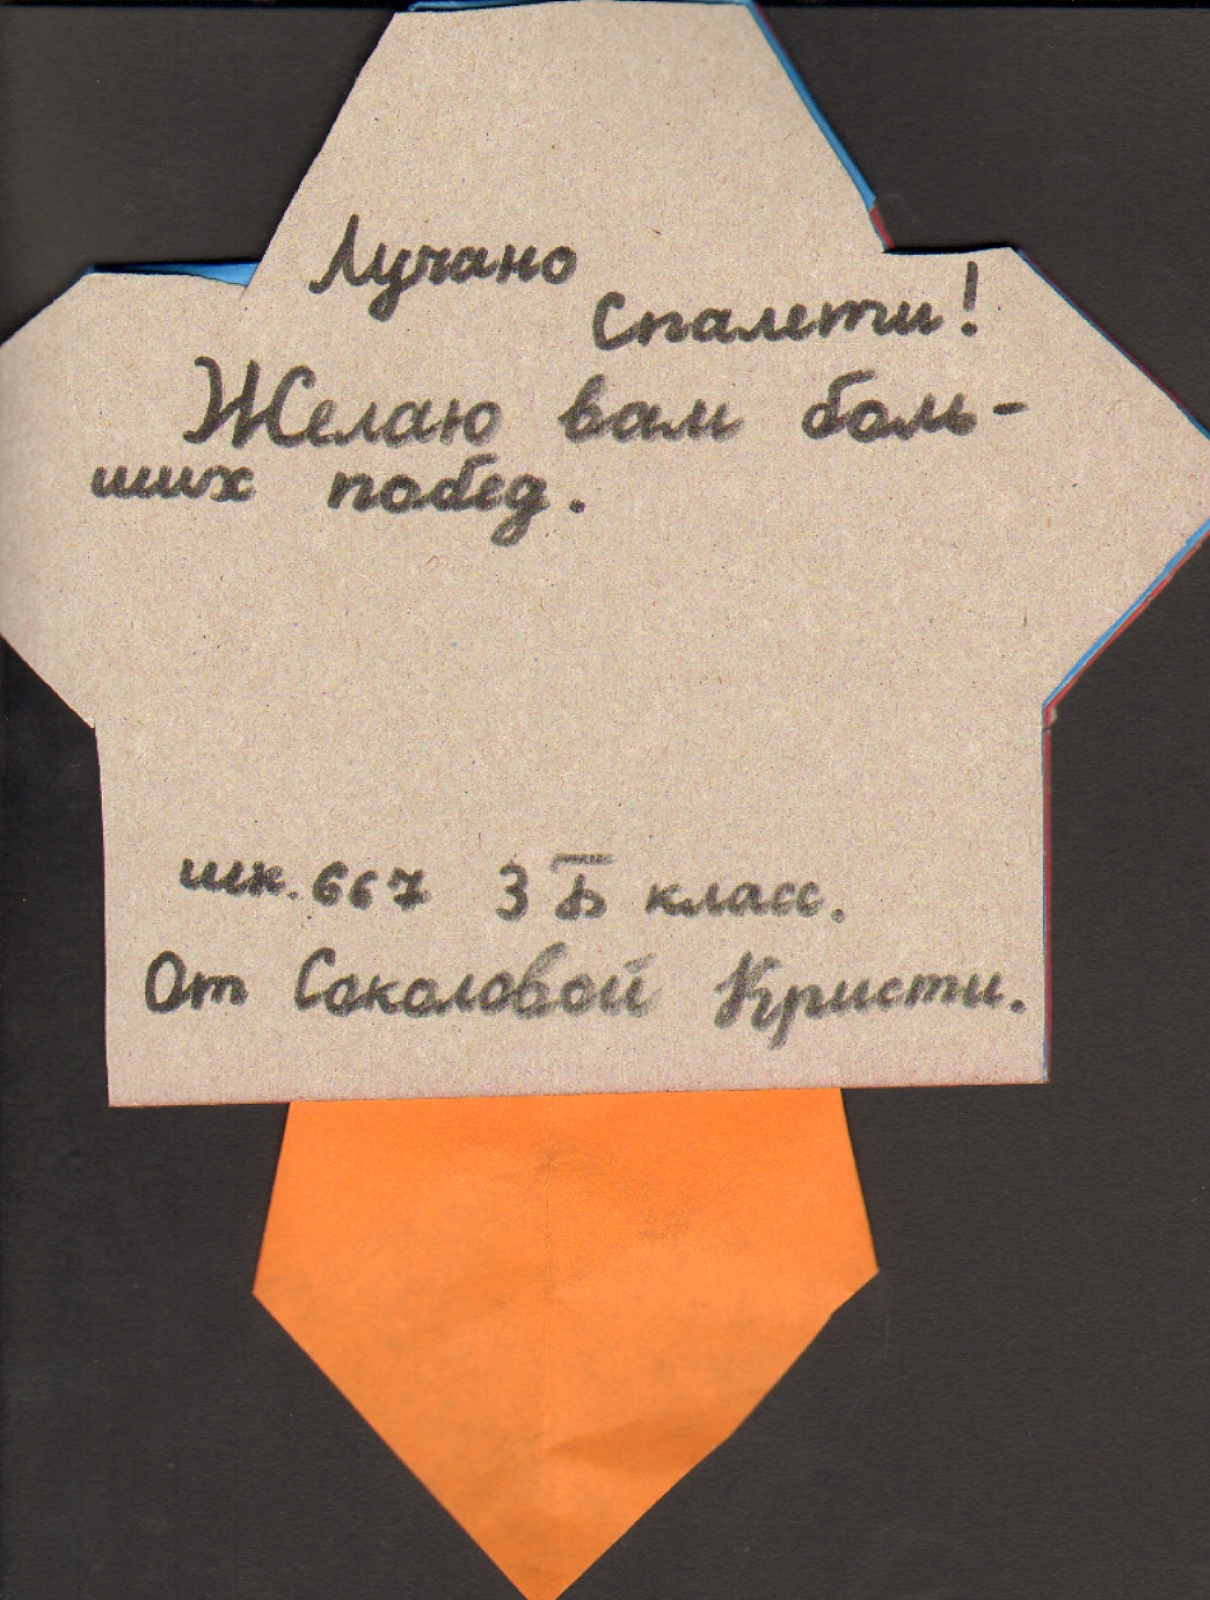 Лучано
Спалети!
Желаю вам боль-
ших побед.
шк. 667 3 Б класс.
От Соколовой Кристи.